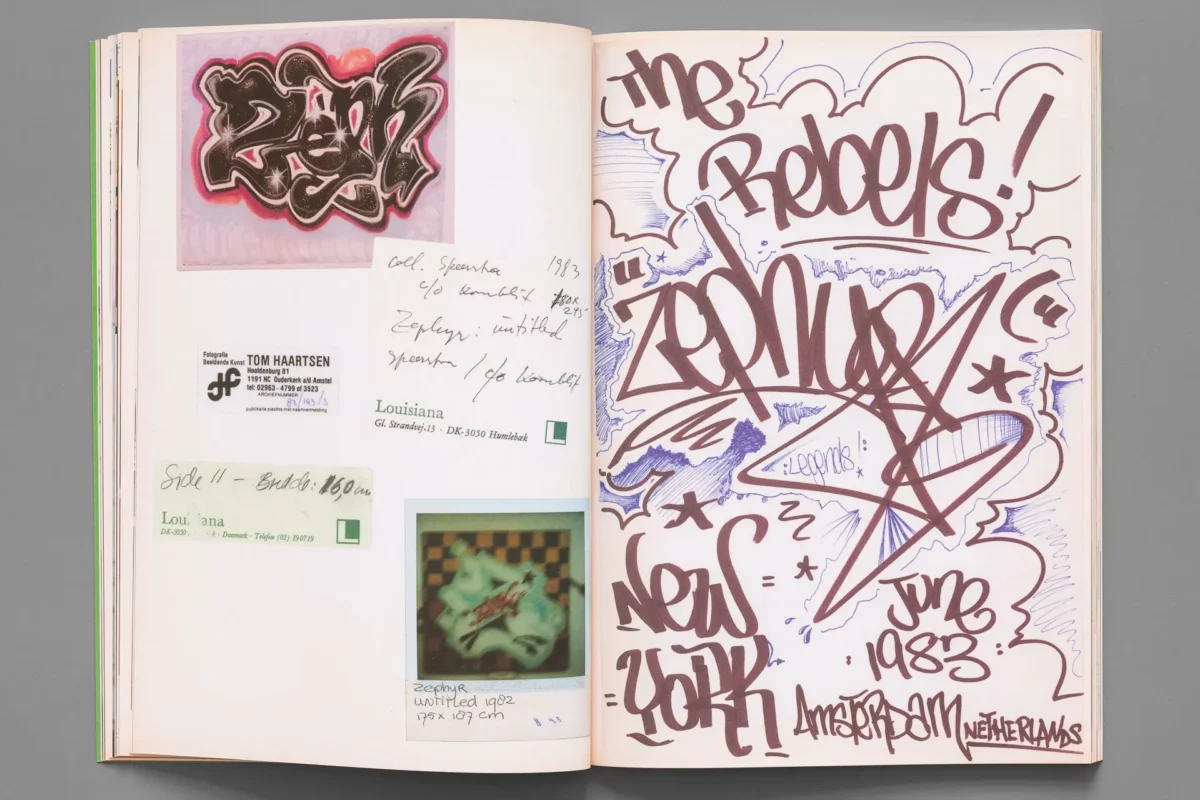 Zeph
coll. Speerstra 1983
c/o Kornblit 180x
245
Zephyr: untitled
Speerstra / c/o Kornblit
Fotografie
Beeldende Kunst
TOM HAARTSEN
Hooldenburg 81
1191 NC Ouderkerk a/d Amstel
tel: 02963 - 4799 of 3523
ARCHIEFNUMMER
publikatie slechts met naamvermelding
Louisiana
Gl. Strandvej.13 · DK-3050 Humlebæk
Side 11 - Bredde: 16,0 cm
Lou iana
DK-3050 k · Danmark · Telefon (02) 190719
zephyr
untitled 1982
175 x 187 cm
The
Rebels!
"Zephyr"
Legends!
New
York
June
1983
Amsterdam
Netherlands